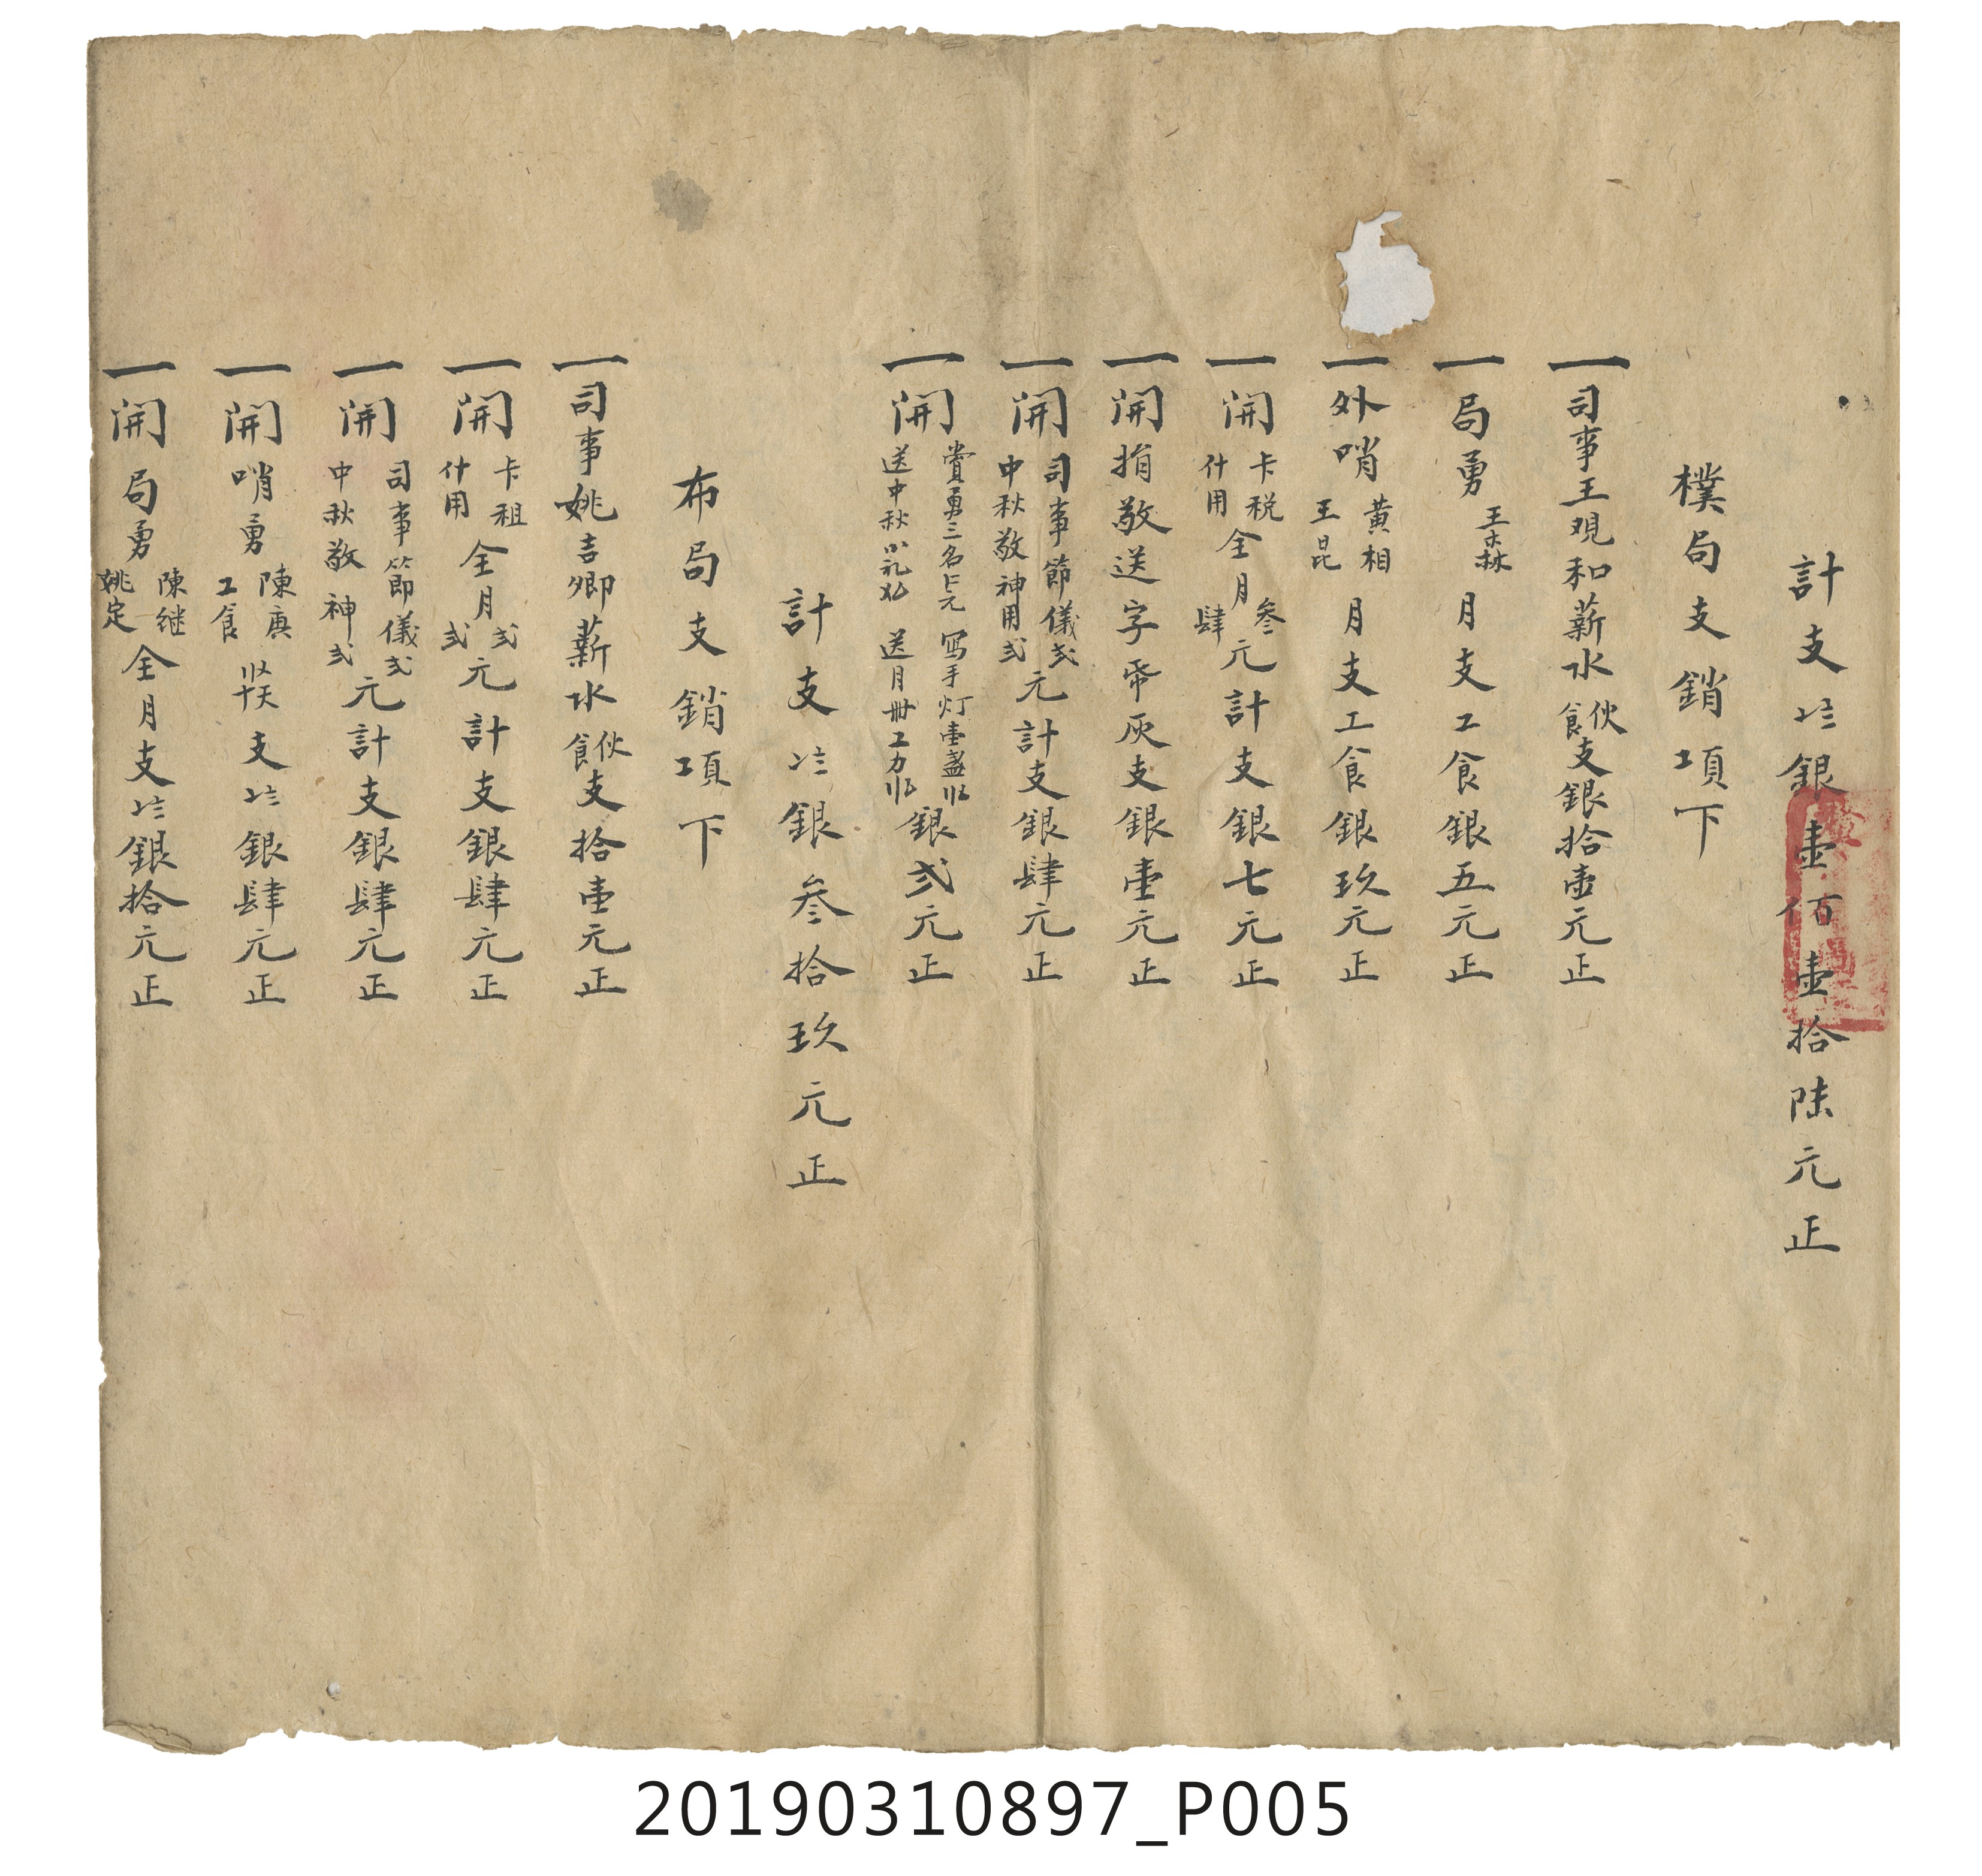 計支銀壹佰壹拾陸元正
樸局支銷項下
一司事王观和薪水伙餼支銀拾壹元正
一局勇王森月支工食銀五元正
一外哨黃相王昆月支工食銀玖元正
一開卡税什用仝月叁肆元計支銀七元正
一開捐敬送字帋灰支銀壹元正
一開司事節儀弍中秋敬神用弍元計支銀肆元正
一開賞勇三名 写手灯壹盞 送中秋小礼 送月冊工力 銀弍元正
計支銀叁拾玖元正
布局支銷項下
一司事姚吉卿薪水伙餼支拾壹元正
一開卡租什用仝月弍弍元計支銀肆元正
一開司事節儀弍中秋敬神弍元計支銀肆元正
一開哨勇陳庚工食天支銀肆元正
一開局勇陳继姚定仝月支銀拾元正
20190310897_P005